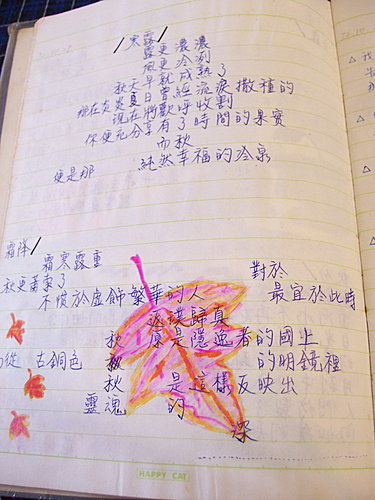 /寒露/
露更濃濃
風更冷冽
秋天早就成熟了
那在炎炎夏日曾經流淚撒種的
現在將歡呼收割
你便充分享有了時間的果實
而秋
便是那 純然幸福的冷泉
霜降/
霜寒露重
秋更蕭索了 對於
不慣於虛飾繁華的人 最宜於此時
返璞歸真
秋 原是隱逸者的國土
從 古銅色 秋 的明鏡裡
秋 是這樣反映出
靈魂 的
深
HAPPY CAT